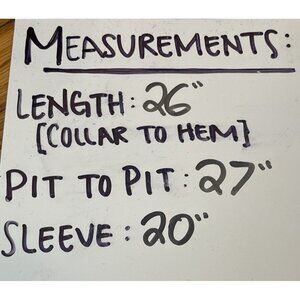 MEASUREMENTS:
LENGTH: 26"
[COLLAR TO HEM]
PIT TO PIT: 27"
SLEEVE: 20"